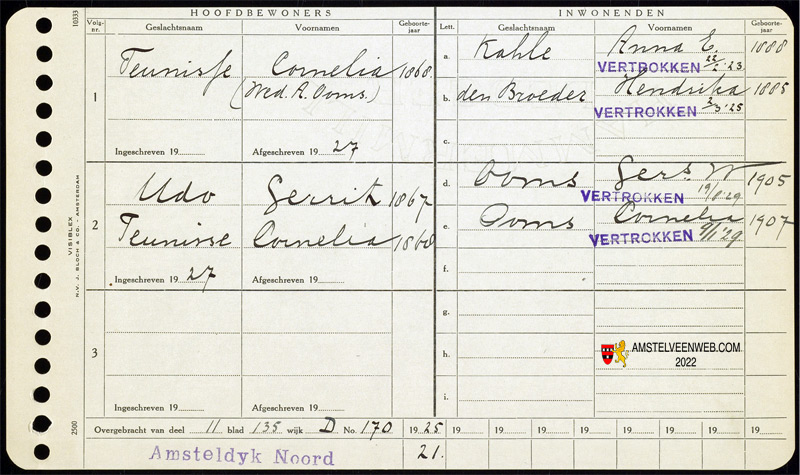 HOOFDBEWONERS
INWONENDEN
10333
Volg-
nr.
Geslachtsnaam
Voornamen
Geboorte-
jaar
Lett.
Geslachtsnaam
Voornamen
Geboorte-
jaar
1
Teunisse Cornelia 1868
(Wed. A. Ooms.)
Ingeschreven 19
Afgeschreven 19 27
2
Udo Gerrit 1867
Teunisse Cornelia 1868
Ingeschreven 19 27
Afgeschreven 19
3
Ingeschreven 19
Afgeschreven 19
a. Kahle Anna E. 1888
VERTROKKEN 22/2-23
b. den Broeder Hendrika 1885
VERTROKKEN 2/3'25
c.
d. Ooms Gers. W 1905
VERTROKKEN 19/8-29
e. Ooms Cornelia 1907
VERTROKKEN 9/1'29
f.
g.
h.
i.
AMSTELVEENWEB.COM
2022
VISIBLEX
N.V. J. BLOCH & CO. - AMSTERDAM
2500
Overgebracht van deel 11 blad 135 wijk D No. 170 1925 19 19 19 19 19 19 19 19
Amsteldyk Noord 21.